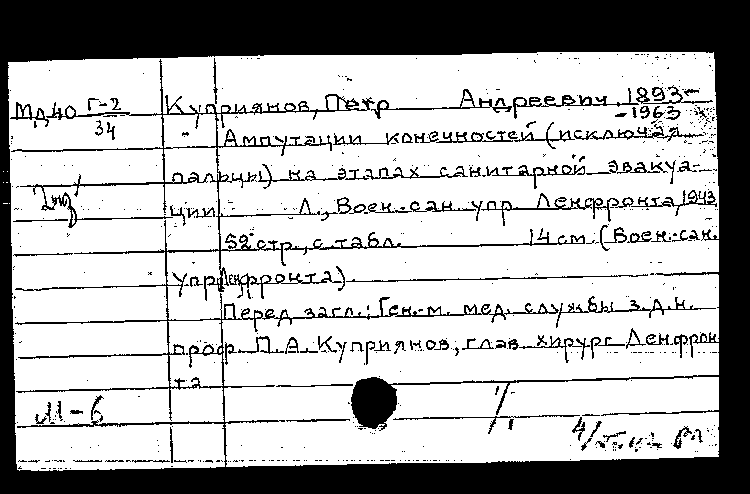 МД40 Г-2/34 Куприянов, Петр Андреевич, 1893-
-1963
" Ампутации конечностей (исключая
пальцы) на этапах санитарной эвакуа-
2 экз
ции Л., Воен.-сан. упр. Ленфронта, 1943
52 стр., с табл. 14 см. (Воен.-сан.
упр Ленфронта).
Перед загл.: Ген.-м. мед. службы з.д.н.
проф. П.А. Куприянов, глав. хирург Ленфрон
та
М-6